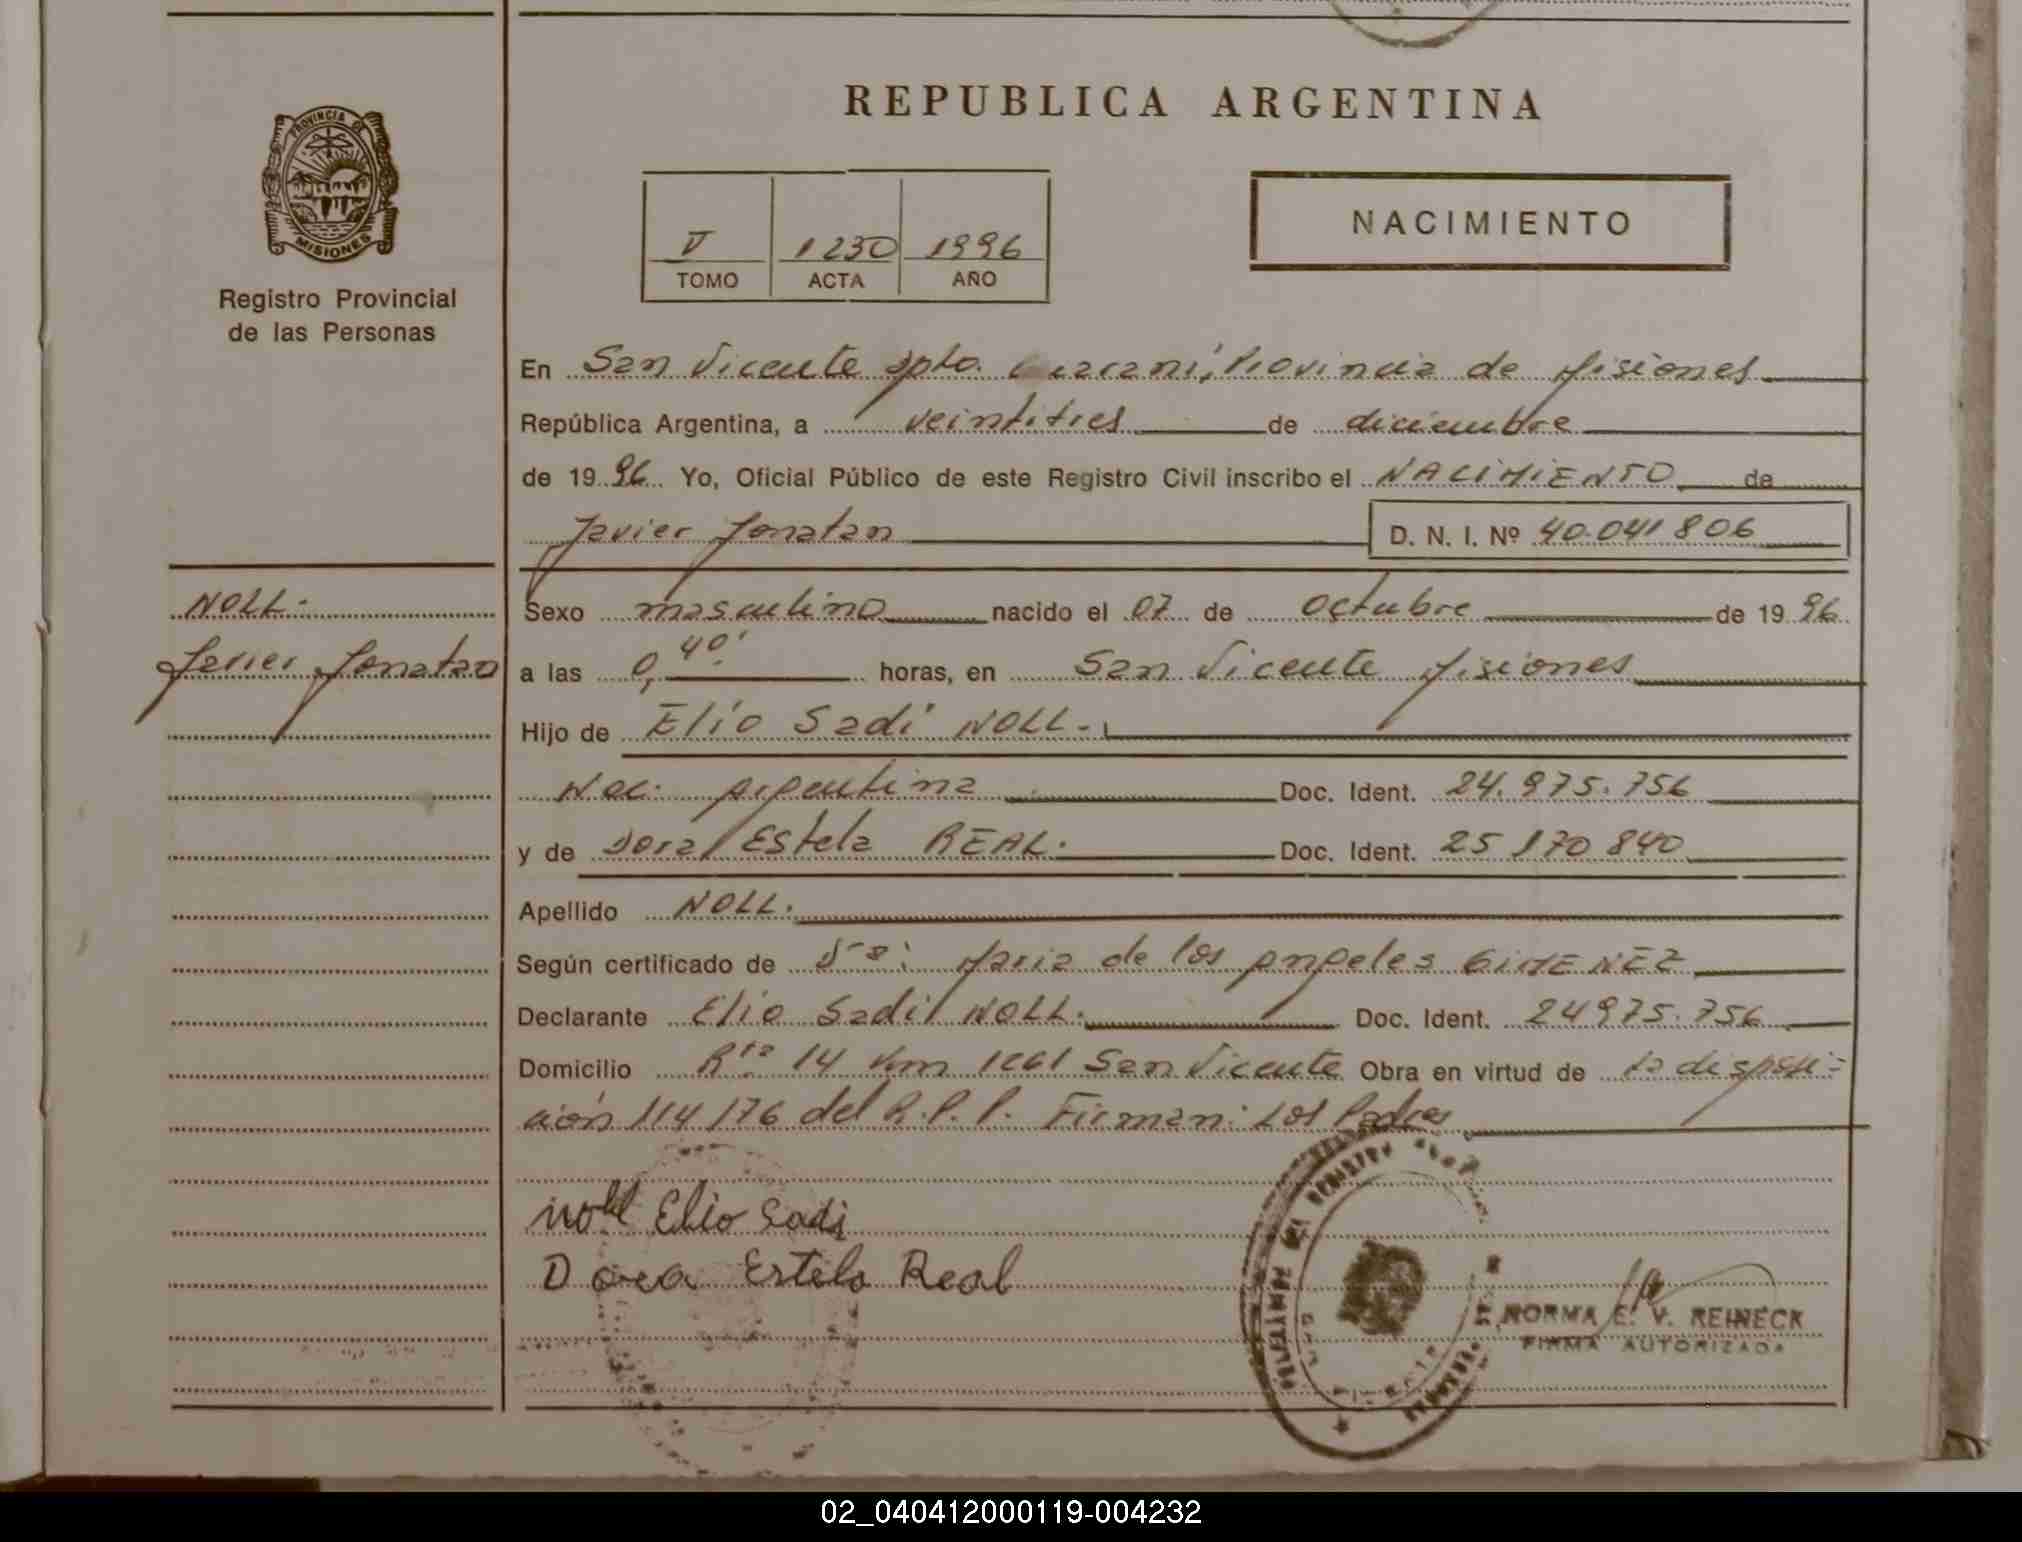 REPUBLICA ARGENTINA
PROVINCIA DE
MISIONES
Registro Provincial
de las Personas
V 1230 1996
TOMO ACTA AÑO
NACIMIENTO
En San Vicente Dpto. Guarani, Provincia de Misiones
República Argentina, a veintitres de diciembre
de 19 96 Yo, Oficial Público de este Registro Civil inscribo el NACIMIENTO de
Javier Jonatan D. N. I. Nº 40.041806
NOLL.
Javier Jonatan
Sexo masculino nacido el 07 de octubre de 19 96
a las 0,40' horas, en San Vicente Misiones
Hijo de Elio Sadi NOLL.
Nac. Argentina Doc. Ident. 24.975.756
y de Dora Estela REAL. Doc. Ident. 25 170 840
Apellido NOLL.
Según certificado de Maria de los Angeles GIMENEZ
Declarante Elio Sadi NOLL. Doc. Ident. 24975.756
Domicilio Rta 14 Km 1261 San Vicente Obra en virtud de la disposi-
ción 114/76 del R.P.P. Firman: Los Padres
Noll Elio Sadi
Dora Estela Real
NORMA E. V. REINECK
FIRMA AUTORIZADA
02_040412000119-004232